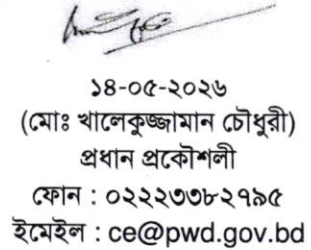 ১৪-০৫-২০২৬
(মোঃ খালেকুজ্জামান চৌধুরী)
প্রধান প্রকৌশলী
ফোন : ০২২২৩৩৮২৭৯৫
ইমেইল : ce@pwd.gov.bd